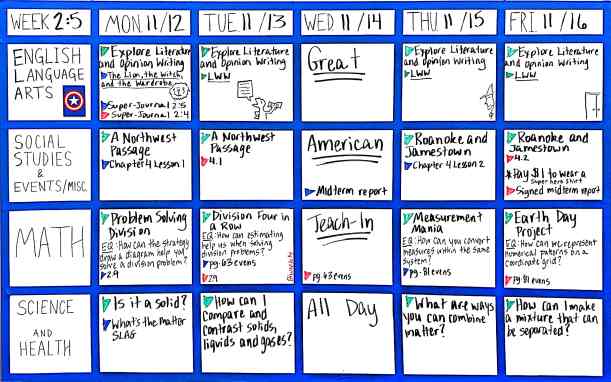 WEEK 2:5
MON 11/12
TUE 11/13
WED 11/14
THU 11/15
FRI 11/16
ENGLISH
LANGUAGE
ARTS
Explore Literature
and Opinion Writing
The Lion, the Witch,
and the Wardrobe
Super-Journal 2:5
Super-Journal 2:4
Explore Literature
and Opinion Writing
LWW
Great
Explore Literature
and Opinion Writing
LWW
Explore Literature
and Opinion Writing
LWW
SOCIAL
STUDIES
&
EVENTS/MISC.
A Northwest
Passage
Chapter 4 Lesson 1
A Northwest
Passage
4.1
American
Midterm report
Roanoke and
Jamestown
Chapter 4 Lesson 2
Roanoke and
Jamestown
4.2
*Pay $1 to wear a
super hero shirt
Signed midterm report
MATH
Problem Solving
Division
EQ: How can the strategy
draw a diagram help you
solve a division problem?
2.9
Division Four in
a Row
EQ: How can estimating
help us when solving
division problems?
pg. 63 evens
2.9
Teach-In
pg. 63 evens
Measurement
Mania
EQ: How can you convert
measures within the same
system?
pg. 81 evens
Earth Day
Project
EQ: How can we represent
numerical patterns on a
coordinate grid?
pg. 81 evens
SCIENCE
AND
HEALTH
Is it a solid?
What's the Matter
SLAG
How can I
compare and
contrast solids,
liquids and gases?
All Day
What are ways
you can combine
matter?
How can I make
a mixture that can
be separated?